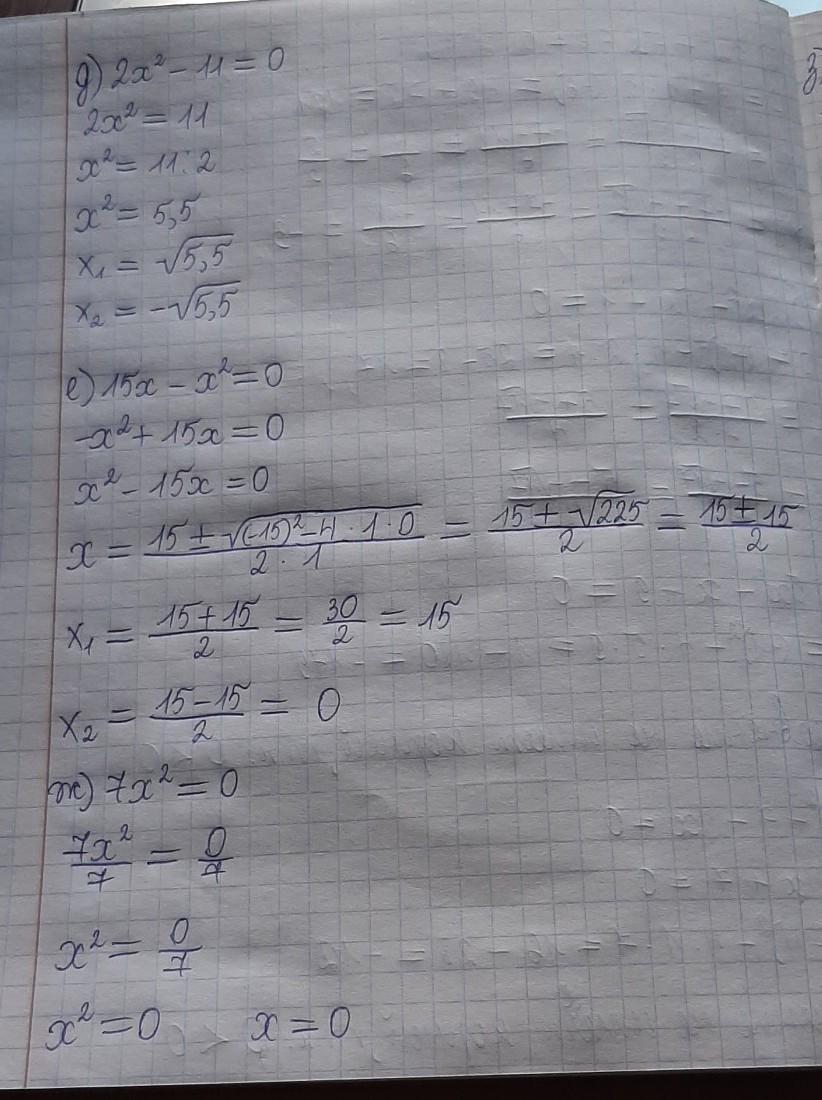 д) 2x² − 11 = 0
2x² = 11
x² = 11 : 2
x² = 5,5
x₁ = √5,5
x₂ = −√5,5
е) 15x − x² = 0
−x² + 15x = 0
x² − 15x = 0
x = (15 ± √((−15)² − 4 · 1 · 0))/(2 · 1) = (15 ± √225)/2 = (15 ± 15)/2
x₁ = (15 + 15)/2 = 30/2 = 15
x₂ = (15 − 15)/2 = 0
ж) 7x² = 0
7x²/7 = 0/7
x² = 0/7
x² = 0 x = 0